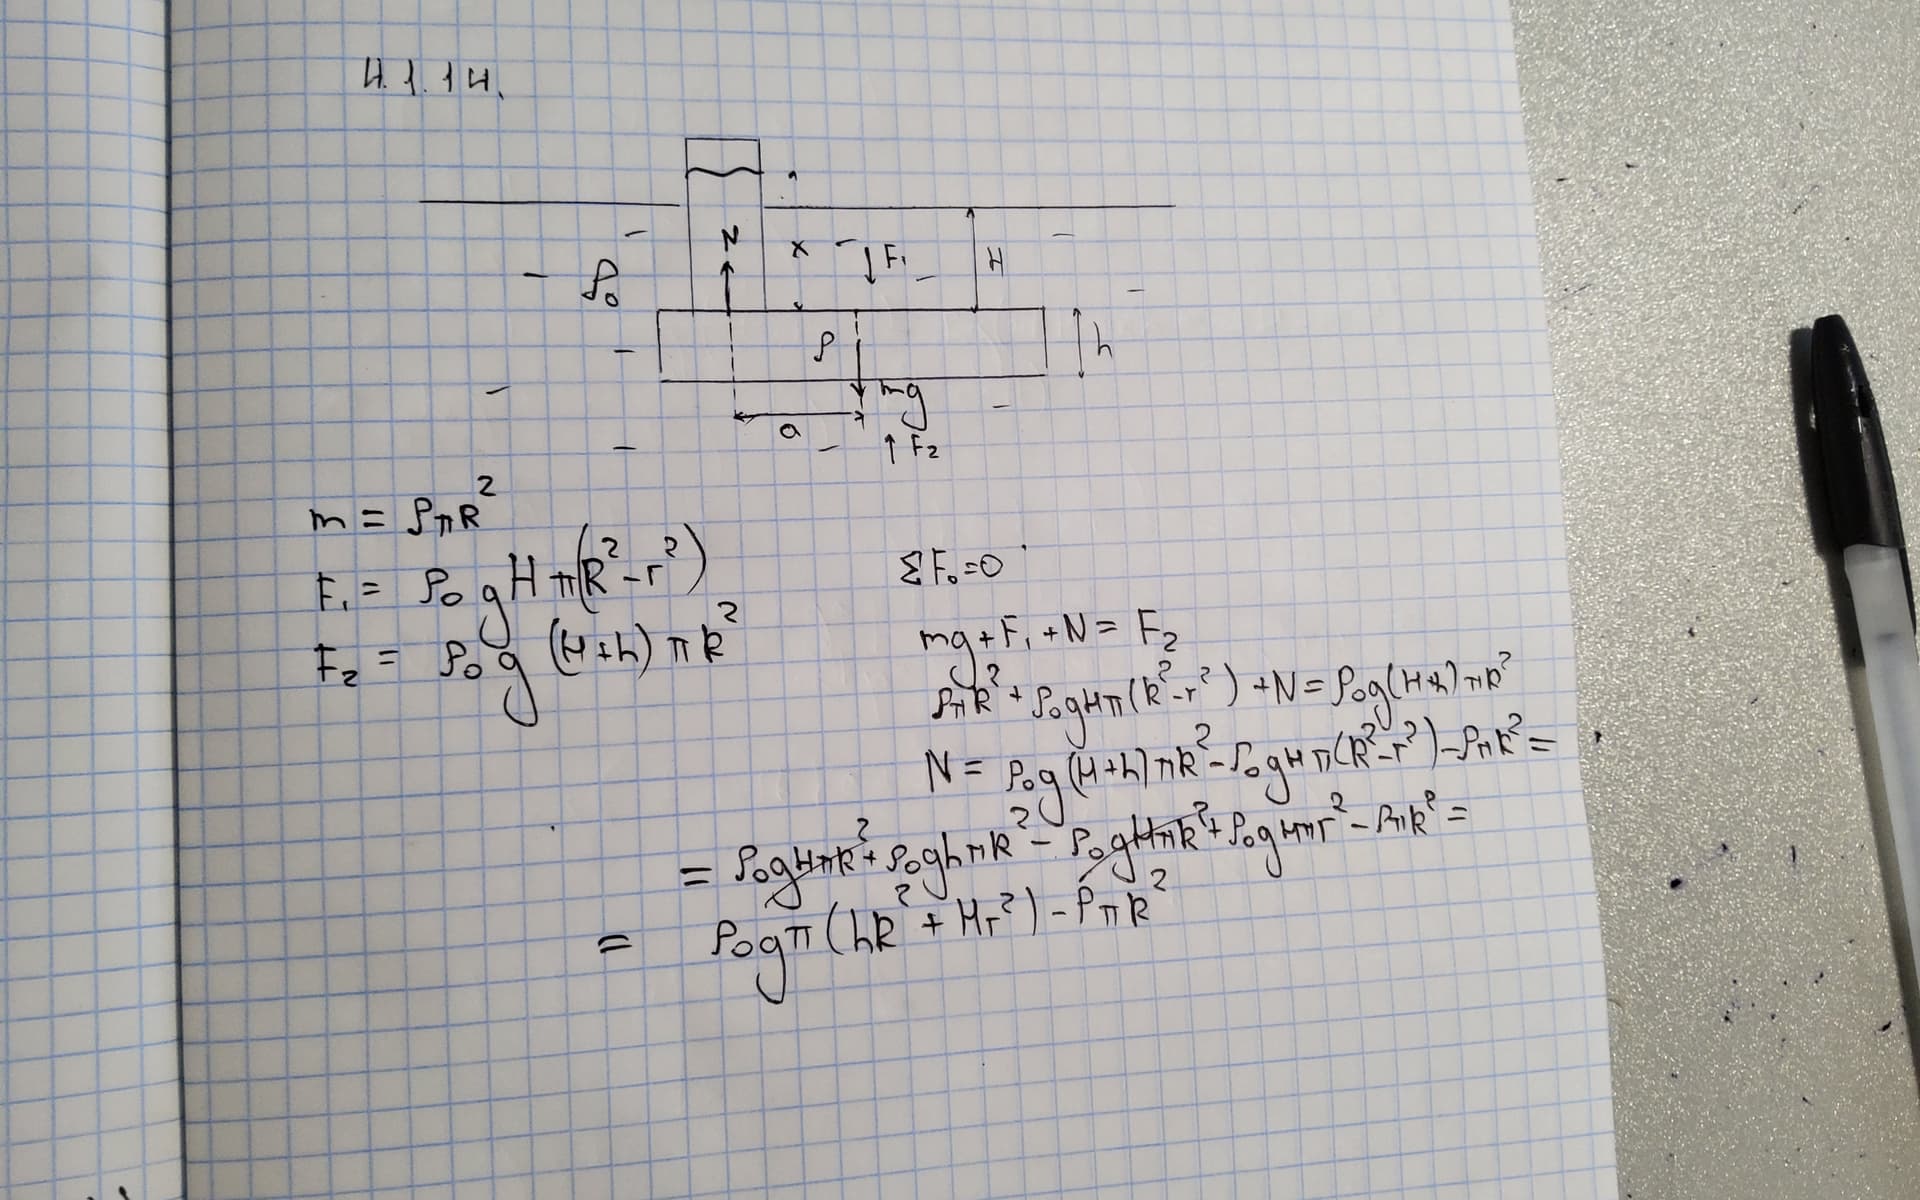 4.1.14.
N
x
F₁
H
ρ₀
ρ
h
mg
a
F₂
m = ρπR²
F₁ = ρ₀gHπ(R²-r²)
F₂ = ρ₀g(H+h)πR²
ΣF₀=0
mg+F₁+N=F₂
ρπR²+ρ₀gHπ(R²-r²)+N=ρ₀g(H+h)πR²
N=ρ₀g(H+h)πR²-ρ₀gHπ(R²-r²)-ρπR²=
=ρ₀gHπR²+ρ₀ghπR²-ρ₀gHπR²+ρ₀gHπr²-ρπR²=
= ρ₀gπ(hR²+Hr²)-ρπR²